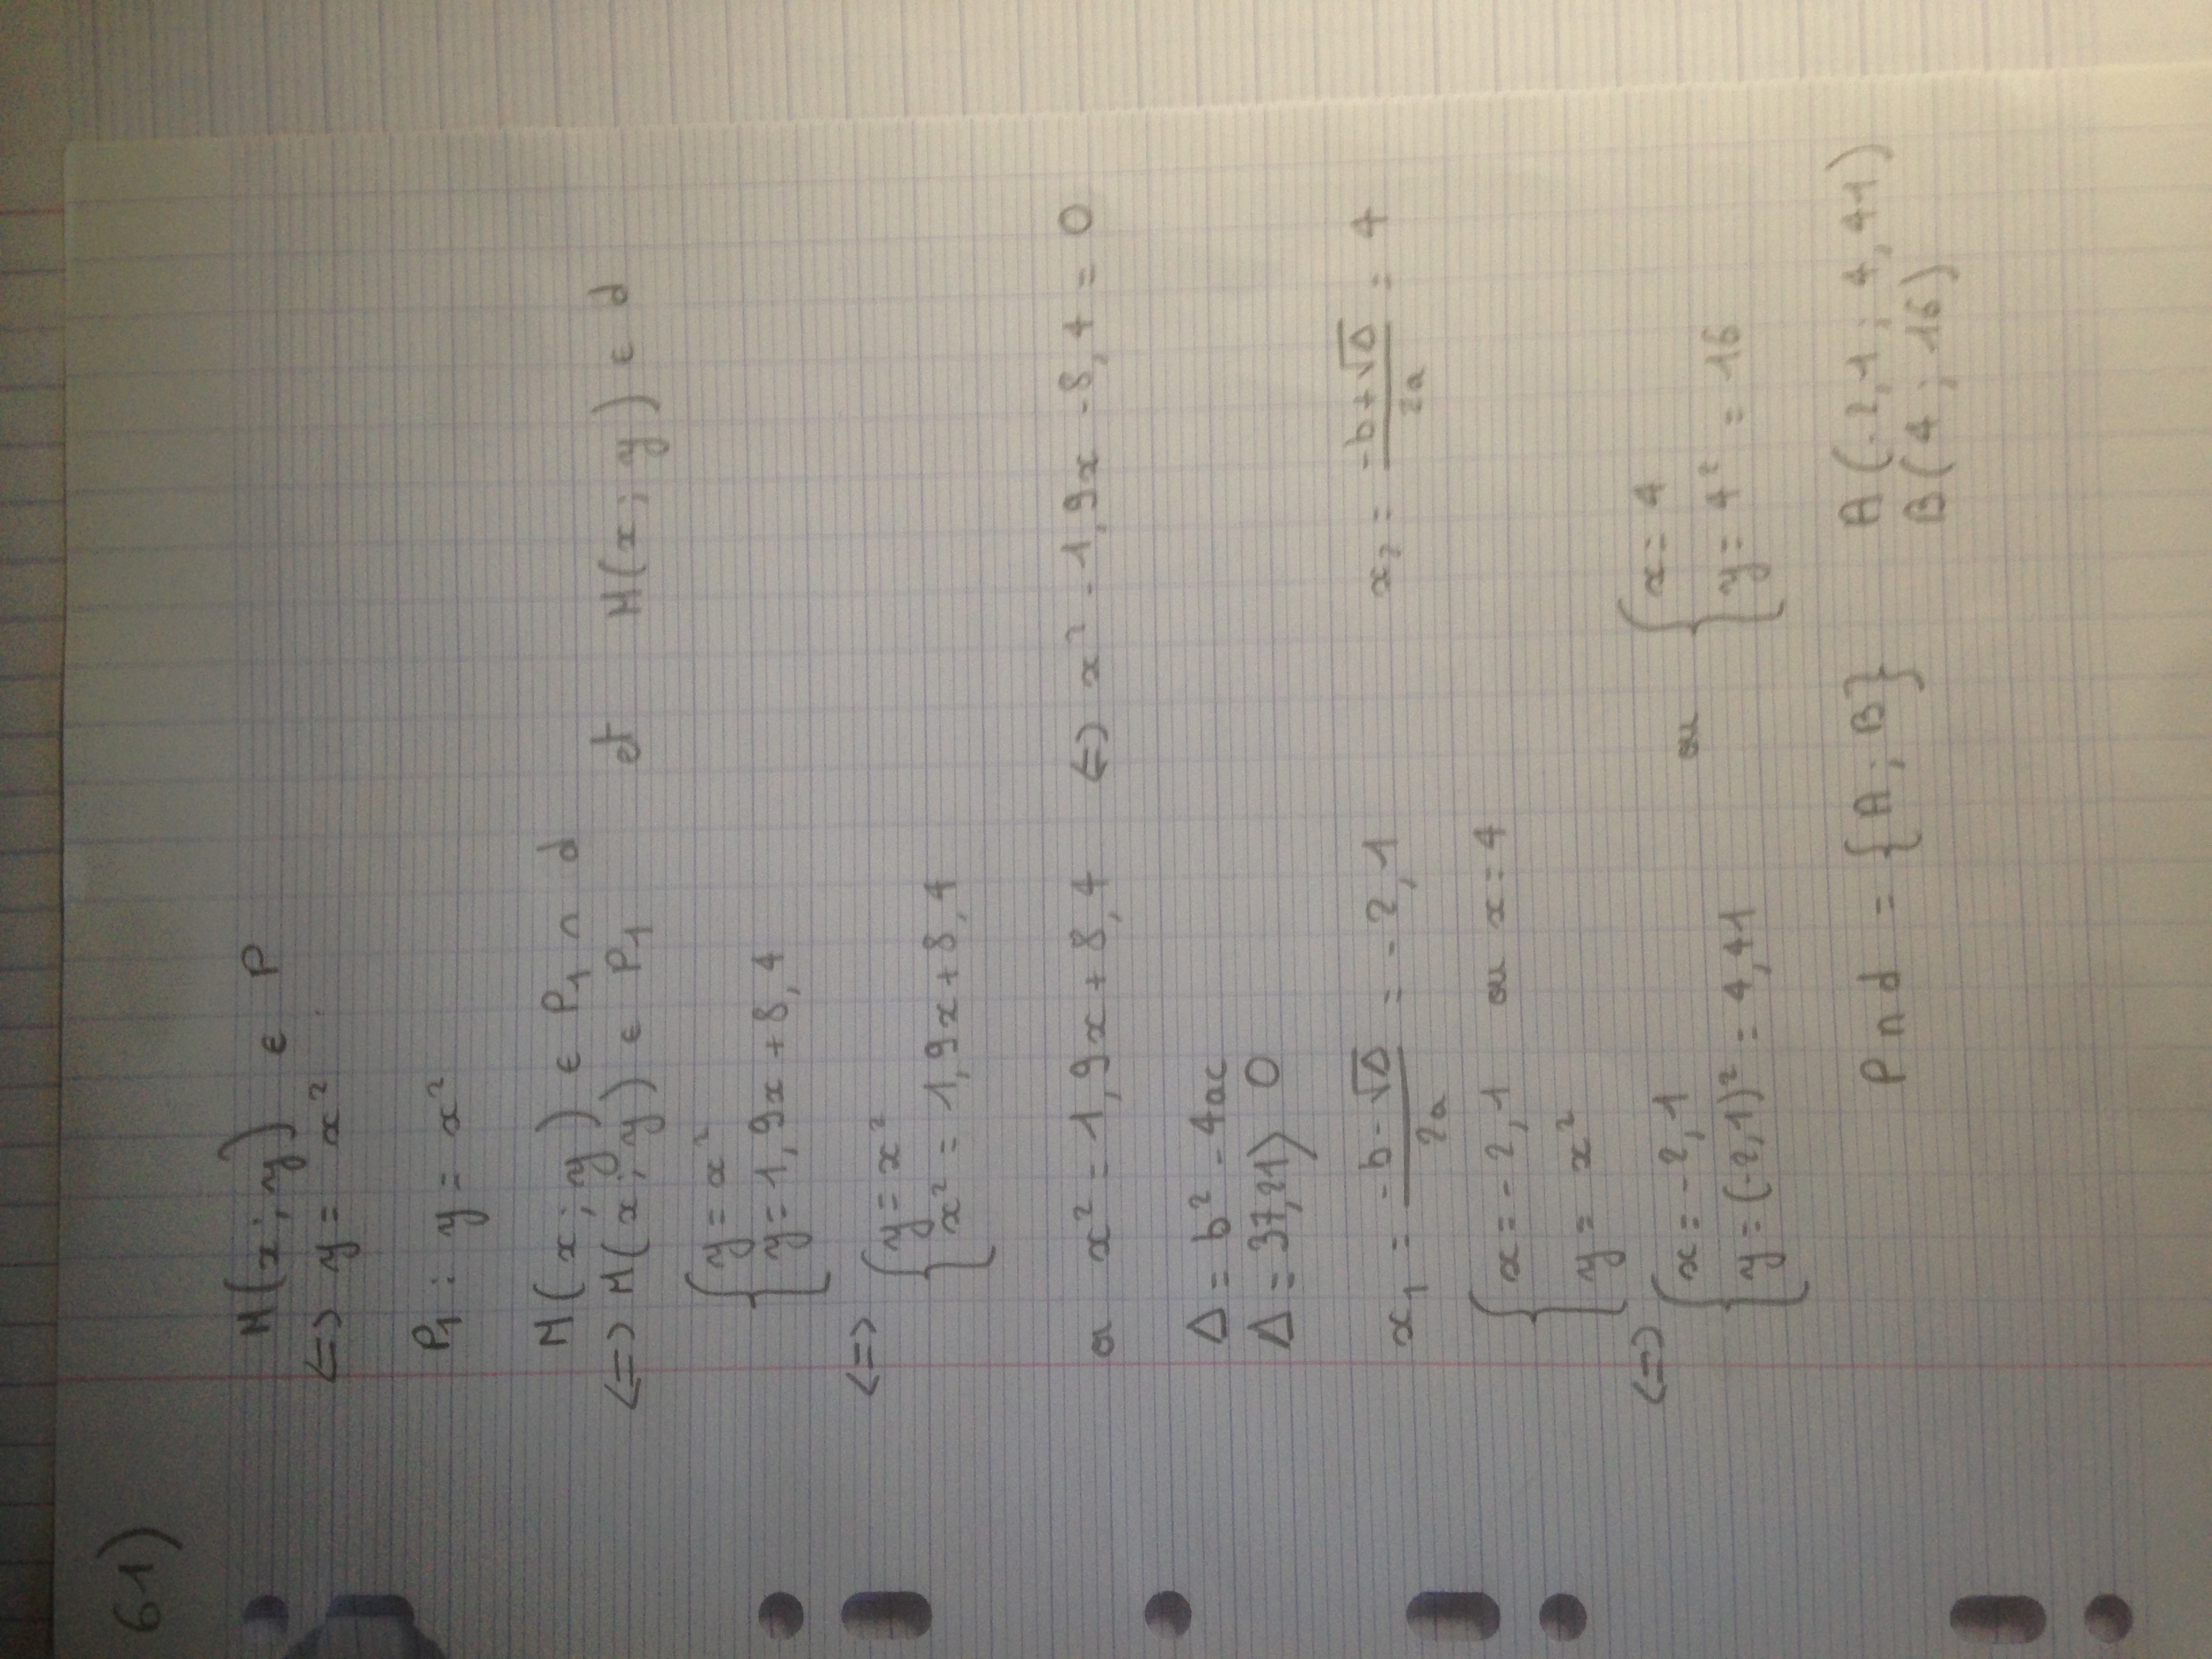 61)
M(x; y) ∈ P
<=> y = x²
P₁ : y = x²
M(x; y) ∈ P₁ ∩ d
<=> M(x; y) ∈ P₁ et M(x; y) ∈ d
{ y = x²
y = 1,9x + 8,4
<=> { y = x²
x² = 1,9x + 8,4
or x² = 1,9x + 8,4 <=> x² - 1,9x - 8,4 = 0
Δ = b² - 4ac
Δ = 37,21 > 0
x₁ = (-b - √Δ) / 2a = -2,1 x₂ = (-b + √Δ) / 2a = 4
{ x = -2,1 ou x = 4
y = x²
<=> { x = -2,1 ou { x = 4
y = (-2,1)² = 4,41 y = 4² = 16
P ∩ d = {A; B} A(-2,1; 4,41)
B(4; 16)